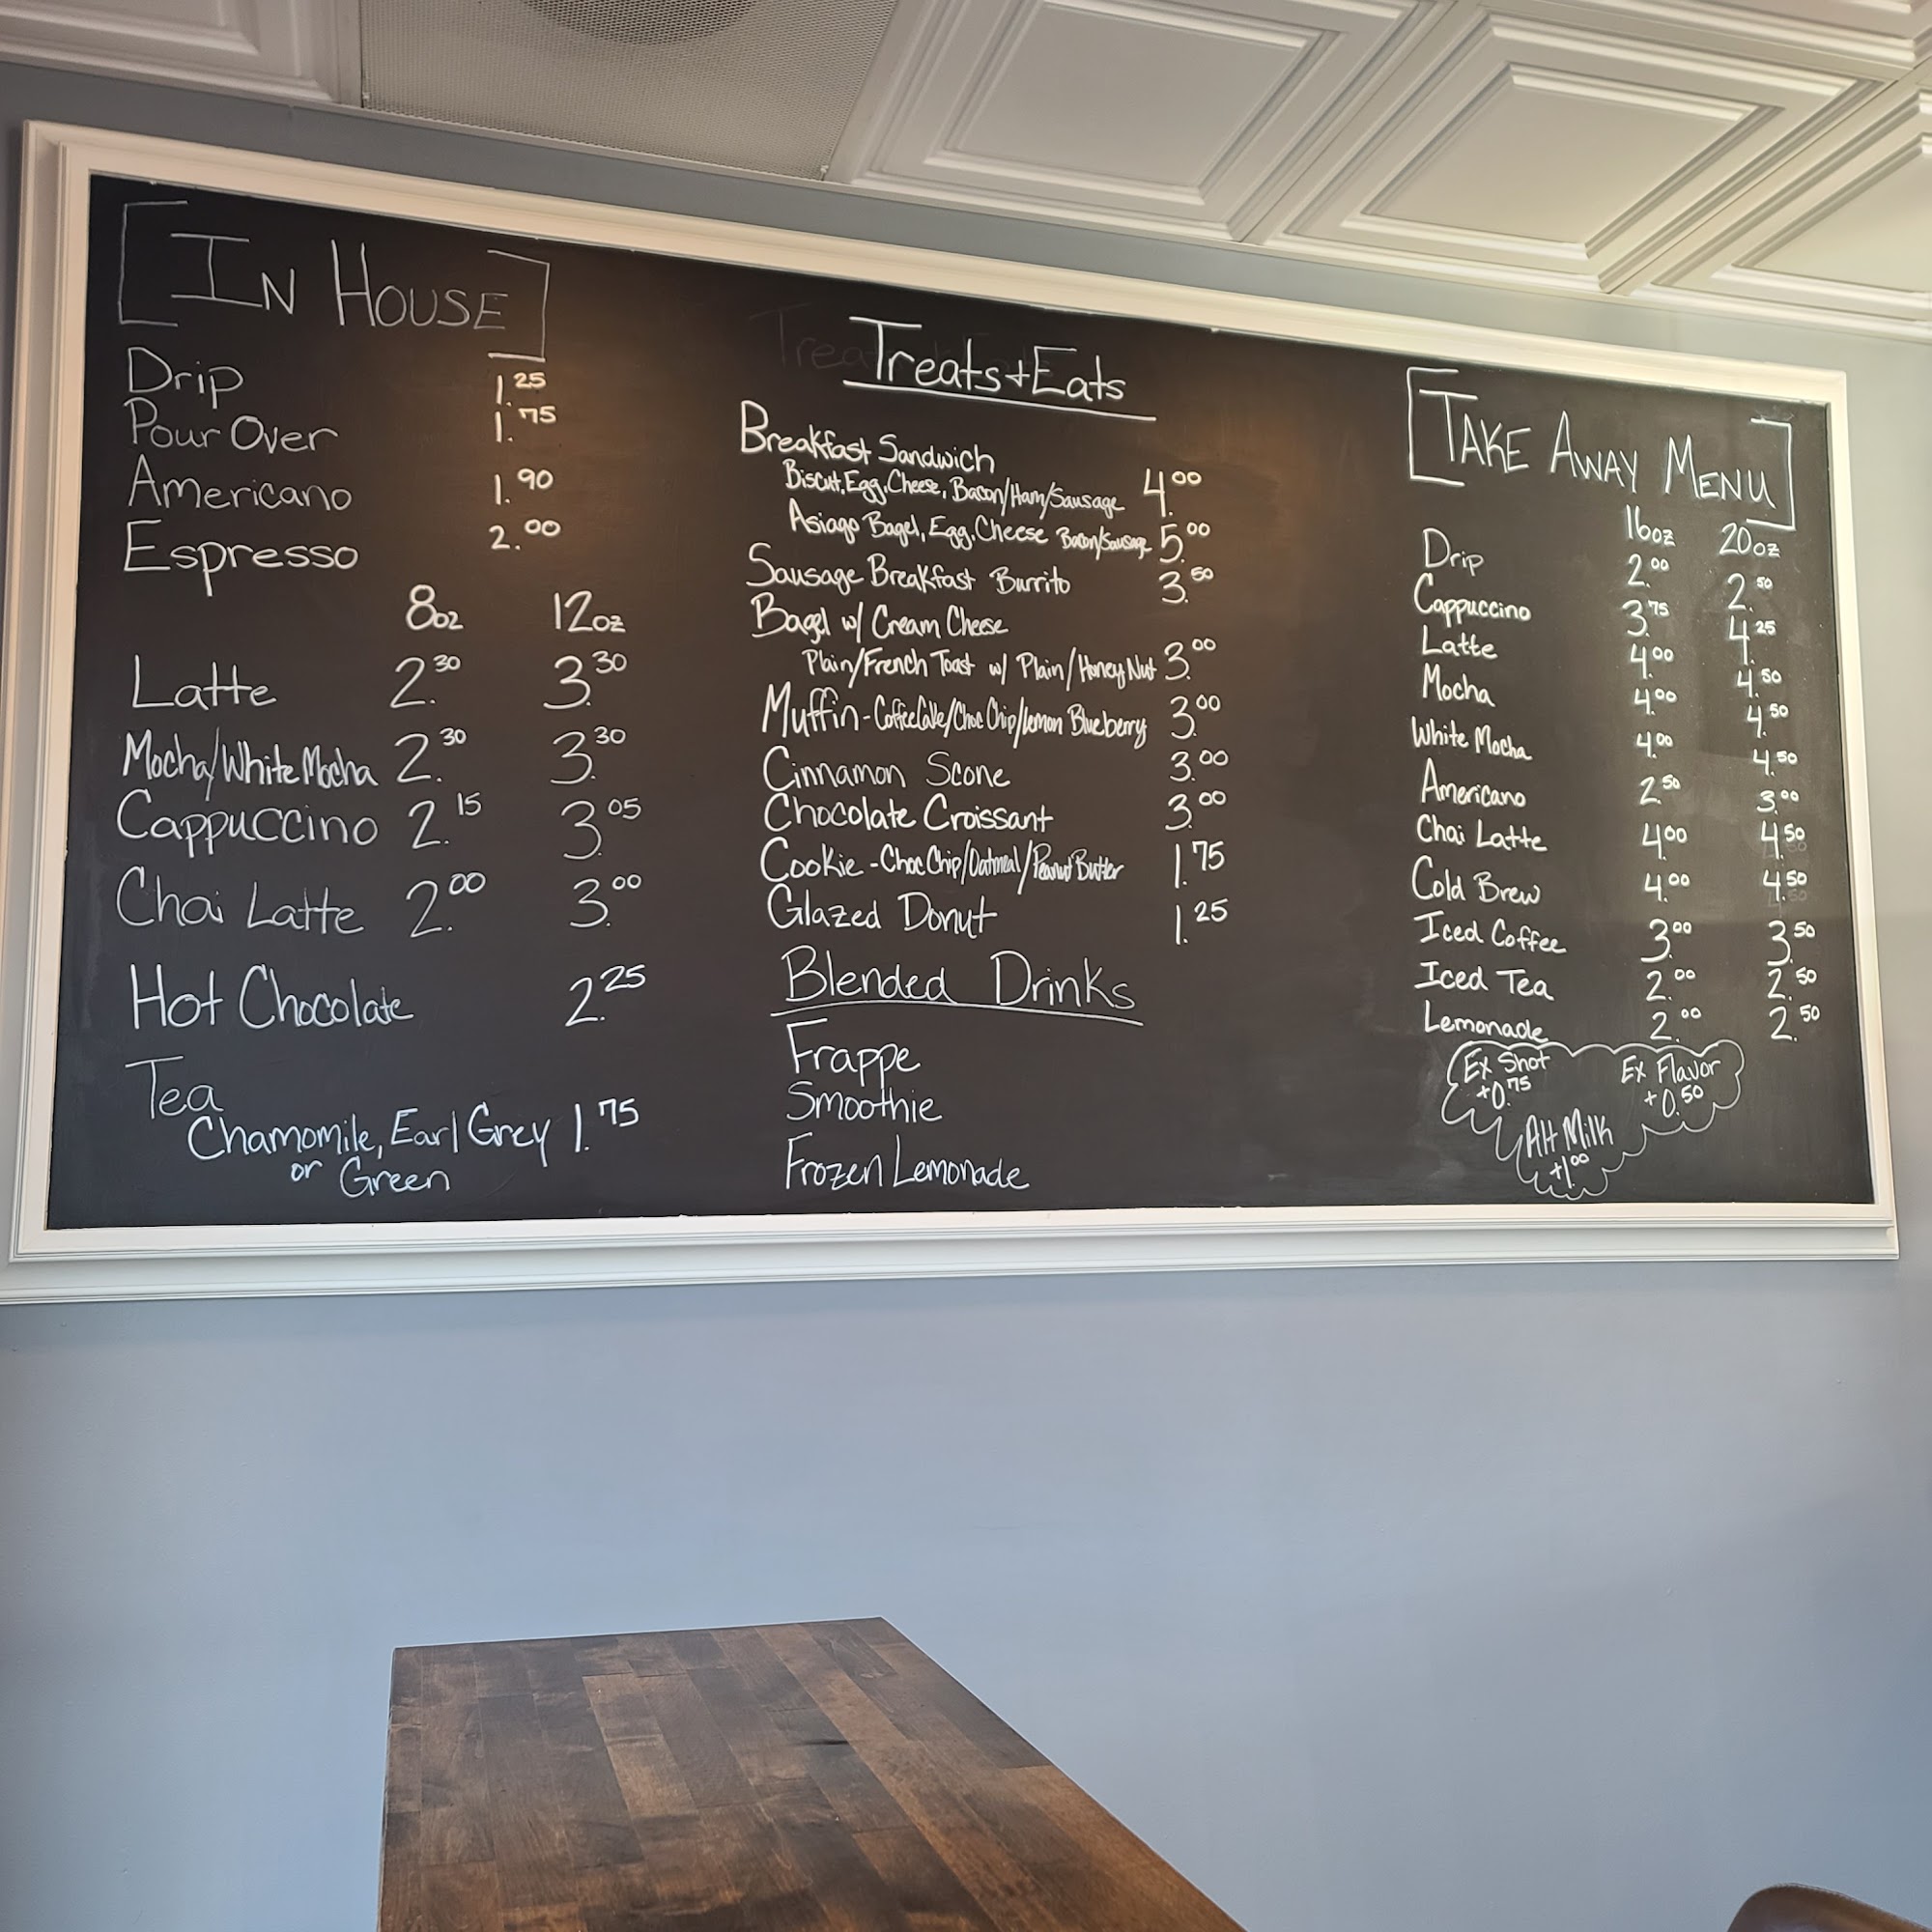 IN HOUSE
Drip 1.25
Pour Over 1.75
Americano 1.90
Espresso 2.00
8oz 12oz
Latte 2.30 3.30
Mocha/White Mocha 2.30 3.30
Cappuccino 2.15 3.05
Chai Latte 2.00 3.00
Hot Chocolate 2.25
Tea
Chamomile, Earl Grey 1.75
or Green
Treats+Eats
Breakfast Sandwich
Biscuit, Egg, Cheese, Bacon/Ham/Sausage 4.00
Asiago Bagel, Egg, Cheese Bacon/Sausage 5.00
Sausage Breakfast Burrito 3.50
Bagel w/ Cream Cheese
Plain/French Toast w/ Plain/Honey Nut 3.00
Muffin - CoffeeCake/Choc Chip/Lemon Blueberry 3.00
Cinnamon Scone 3.00
Chocolate Croissant 3.00
Cookie - Choc Chip/Oatmeal/Peanut Butter 1.75
Glazed Donut 1.25
Blended Drinks
Frappe
Smoothie
Frozen Lemonade
TAKE AWAY MENU
16oz 20oz
Drip 2.00 2.50
Cappuccino 3.75 4.25
Latte 4.00 4.50
Mocha 4.00 4.50
White Mocha 4.00 4.50
Americano 2.50 3.00
Chai Latte 4.00 4.50
Cold Brew 4.00 4.50
Iced Coffee 3.00 3.50
Iced Tea 2.00 2.50
Lemonade 2.00 2.50
Ex Shot Ex Flavor
+0.75 +0.50
Alt Milk
+1.00